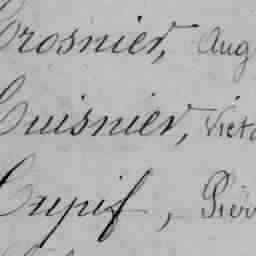 Crosnier, Aug
Cuisnier, Victo
Cupif, Pierr